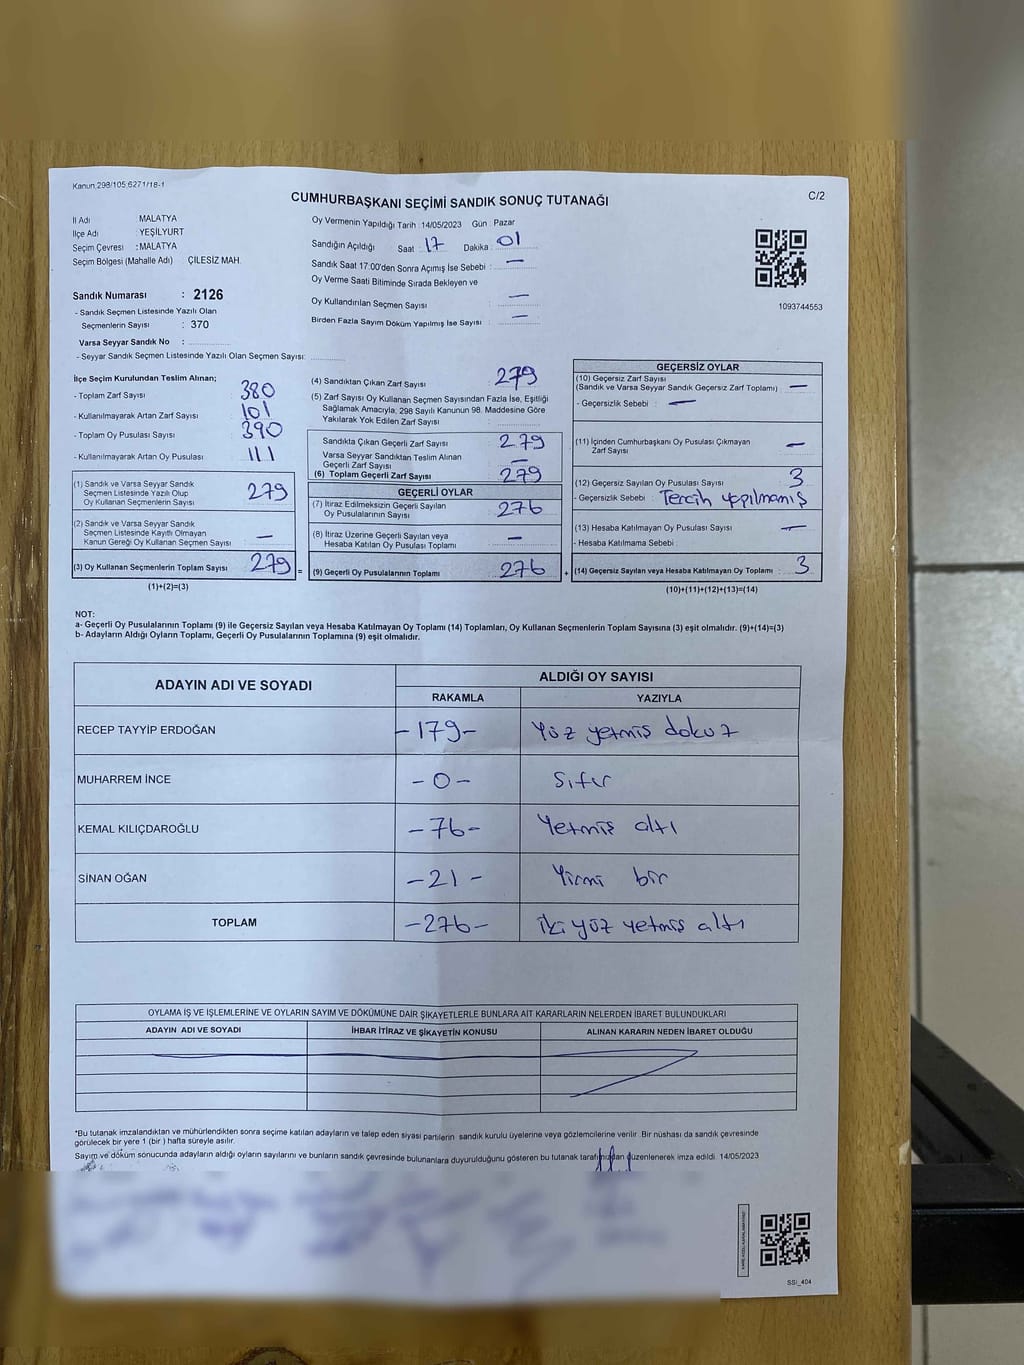 Kanun,298/105,6271/18-1
CUMHURBAŞKANI SEÇİMİ SANDIK SONUÇ TUTANAĞI
C/2
İl Adı : MALATYA
İlçe Adı : YEŞİLYURT
Seçim Çevresi : MALATYA
Seçim Bölgesi (Mahalle Adı) ÇİLESİZ MAH.
Sandık Numarası : 2126
- Sandık Seçmen Listesinde Yazılı Olan
Seçmenlerin Sayısı : 370
Varsa Seyyar Sandık No :
- Seyyar Sandık Seçmen Listesinde Yazılı Olan Seçmen Sayısı:
Oy Vermenin Yapıldığı Tarih : 14/05/2023 Gün : Pazar
Sandığın Açıldığı Saat : 17 Dakika : 01
Sandık Saat 17:00'den Sonra Açımış İse Sebebi : —
Oy Verme Saati Bitiminde Sırada Bekleyen ve
Oy Kullandırılan Seçmen Sayısı : —
Birden Fazla Sayım Döküm Yapılmış İse Sayısı : —
1093744553
İlçe Seçim Kurulundan Teslim Alınan;
- Toplam Zarf Sayısı : 380
- Kullanılmayarak Artan Zarf Sayısı : 101
- Toplam Oy Pusulası Sayısı : 390
- Kullanılmayarak Artan Oy Pusulası : 111
(1) Sandık ve Varsa Seyyar Sandık
Seçmen Listesinde Yazılı Olup
Oy Kullanan Seçmenlerin Sayısı : 279
(2) Sandık ve Varsa Seyyar Sandık
Seçmen Listesinde Kayıtlı Olmayan
Kanun Gereği Oy Kullanan Seçmen Sayısı : —
(3) Oy Kullanan Seçmenlerin Toplam Sayısı : 279 =
(1)+(2)=(3)
(4) Sandıktan Çıkan Zarf Sayısı : 279
(5) Zarf Sayısı Oy Kullanan Seçmen Sayısından Fazla İse, Eşitliği
Sağlamak Amacıyla, 298 Sayılı Kanunun 98. Maddesine Göre
Yakılarak Yok Edilen Zarf Sayısı :
Sandıkta Çıkan Geçerli Zarf Sayısı : 279
Varsa Seyyar Sandıktan Teslim Alınan
Geçerli Zarf Sayısı : —
(6) Toplam Geçerli Zarf Sayısı : 279
GEÇERLİ OYLAR
(7) İtiraz Edilmeksizin Geçerli Sayılan
Oy Pusulalarının Sayısı : 276
(8) İtiraz Üzerine Geçerli Sayılan veya
Hesaba Katılan Oy Pusulası Toplamı : —
(9) Geçerli Oy Pusulalarının Toplamı : 276 +
GEÇERSİZ OYLAR
(10) Geçersiz Zarf Sayısı
(Sandık ve Varsa Seyyar Sandık Geçersiz Zarf Toplamı) : —
- Geçersizlik Sebebi : —
(11) İçinden Cumhurbaşkanı Oy Pusulası Çıkmayan
Zarf Sayısı : —
(12) Geçersiz Sayılan Oy Pusulası Sayısı : 3
- Geçersizlik Sebebi : Tercih yapılmamış
(13) Hesaba Katılmayan Oy Pusulası Sayısı : —
- Hesaba Katılmama Sebebi :
(14) Geçersiz Sayılan veya Hesaba Katılmayan Oy Toplamı : 3
(10)+(11)+(12)+(13)=(14)
NOT:
a- Geçerli Oy Pusulalarının Toplamı (9) ile Geçersiz Sayılan veya Hesaba Katılmayan Oy Toplamı (14) Toplamları, Oy Kullanan Seçmenlerin Toplam Sayısına (3) eşit olmalıdır. (9)+(14)=(3)
b- Adayların Aldığı Oyların Toplamı, Geçerli Oy Pusulalarının Toplamına (9) eşit olmalıdır.
ADAYIN ADI VE SOYADI ALDIĞI OY SAYISI
RAKAMLA YAZIYLA
RECEP TAYYİP ERDOĞAN -179- Yüz yetmiş dokuz
MUHARREM İNCE -0- Sıfır
KEMAL KILIÇDAROĞLU -76- Yetmiş altı
SİNAN OĞAN -21- Yirmi bir
TOPLAM -276- İki yüz yetmiş altı
OYLAMA İŞ VE İŞLEMLERİNE VE OYLARIN SAYIM VE DÖKÜMÜNE DAİR ŞİKAYETLERLE BUNLARA AİT KARARLARIN NELERDEN İBARET BULUNDUKLARI
ADAYIN ADI VE SOYADI İHBAR İTİRAZ VE ŞİKAYETİN KONUSU ALINAN KARARIN NEDEN İBARET OLDUĞU
*Bu tutanak imzalandıktan ve mühürlendikten sonra seçime katılan adayların ve talep eden siyasi partilerin sandık kurulu üyelerine veya gözlemcilerine verilir. Bir nüshası da sandık çevresinde
görülecek bir yere 1 (bir) hafta süreyle asılır.
Sayım ve döküm sonucunda adayların aldığı oyların sayılarını ve bunların sandık çevresinde bulunanlara duyurulduğunu gösteren bu tutanak tarafımızdan düzenlenerek imza edildi. 14/05/2023
SSI_404